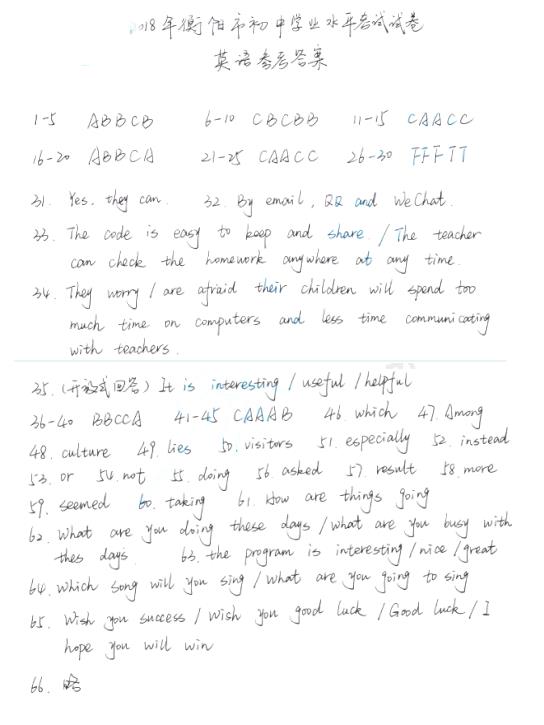 2018年衡阳市初中学业水平考试试卷
英语参考答案
1-5 ABBCB 6-10 CBCBB 11-15 CAACC
16-20 ABBCA 21-25 CAACC 26-30 FFFTT
31. Yes, they can. 32. By email, QQ and WeChat.
33. The code is easy to keep and share. / The teacher
can check the homework anywhere at any time.
34. They worry / are afraid their children will spend too
much time on computers and less time communicating
with teachers.
35. (开放式回答) It is interesting / useful / helpful
36-40 BBCCA 41-45 CAAAB 46. which 47. Among
48. culture 49. lies 50. visitors 51. especially 52. instead
53. or 54. not 55. doing 56. asked 57. result 58. more
59. seemed 60. taking 61. How are things going
62. What are you doing these days / what are you busy with
thes days 63. the program is interesting / nice / great
64. which song will you sing / what are you going to sing
65. Wish you success / Wish you good luck / Good luck / I
hope you will win
66. 略